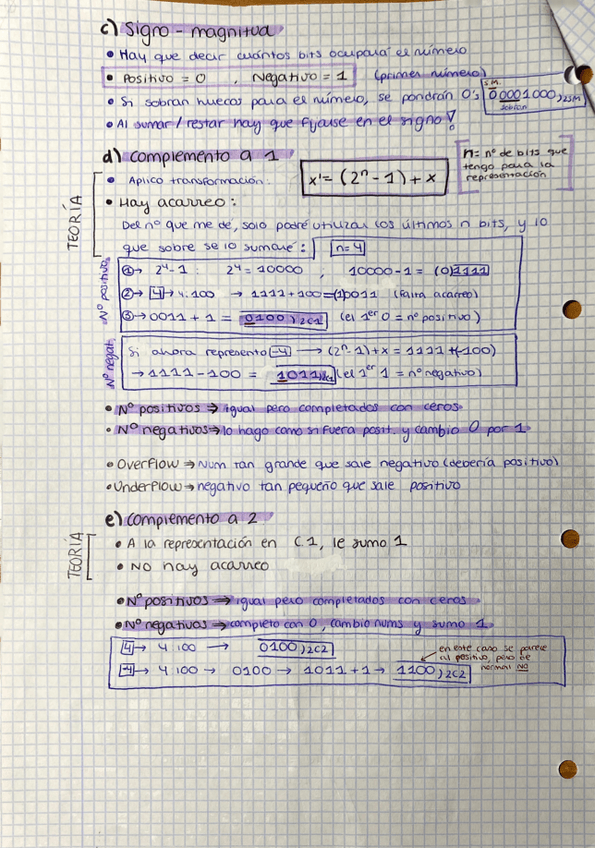 c) Signo - magnitud
• Hay que decir cuántos bits ocupará el número
• Positivo = 0 , Negativo = 1 (primer número)
• Si sobran huecos para el número, se pondrán 0's
S.M.
00001000)2SM
sobran
• Al sumar / restar hay que fijarse en el signo!
d) Complemento a 1
TEORÍA
• Aplico transformación:
x' = (2ⁿ - 1) + x
n = nº de bits que
tengo para la
representación
• Hay acarreo:
Del nº que me dé, solo podré utilizar los últimos n bits, y lo
que sobre se lo sumaré:
n=4
Nº positivos
①→ 2⁴-1 : 2⁴ = 10000 , 10000-1 = (0)1111
②→ 4 → 4:100 → 1111+100=(1)0011 (falta acarreo)
③→ 0011 + 1 = 0100)2C1 (el 1er 0 = nº positivo)
Nº negat.
Si ahora represento -4 → (2ⁿ-1)+x = 1111 + (-100)
→ 1111-100 = 1011)2C1 (el 1er 1 = nº negativo)
• Nº positivos → igual pero completados con ceros
• Nº negativos → lo hago como si fuera posit. y cambio 0 por 1
• Overflow → Num tan grande que sale negativo (debería positivo)
• Underflow → negativo tan pequeño que sale positivo
e) Complemento a 2
TEORÍA
• A la representación en C.1, le sumo 1
• NO hay acarreo
• Nº positivos → igual pero completados con ceros
• Nº negativos → completo con 0, cambio nums y sumo 1
4 → 4:100 → 0100)2C2
-4 → 4:100 → 0100 → 1011+1 → 1100)2C2
en este caso se parece
al positivo, pero de
normal NO